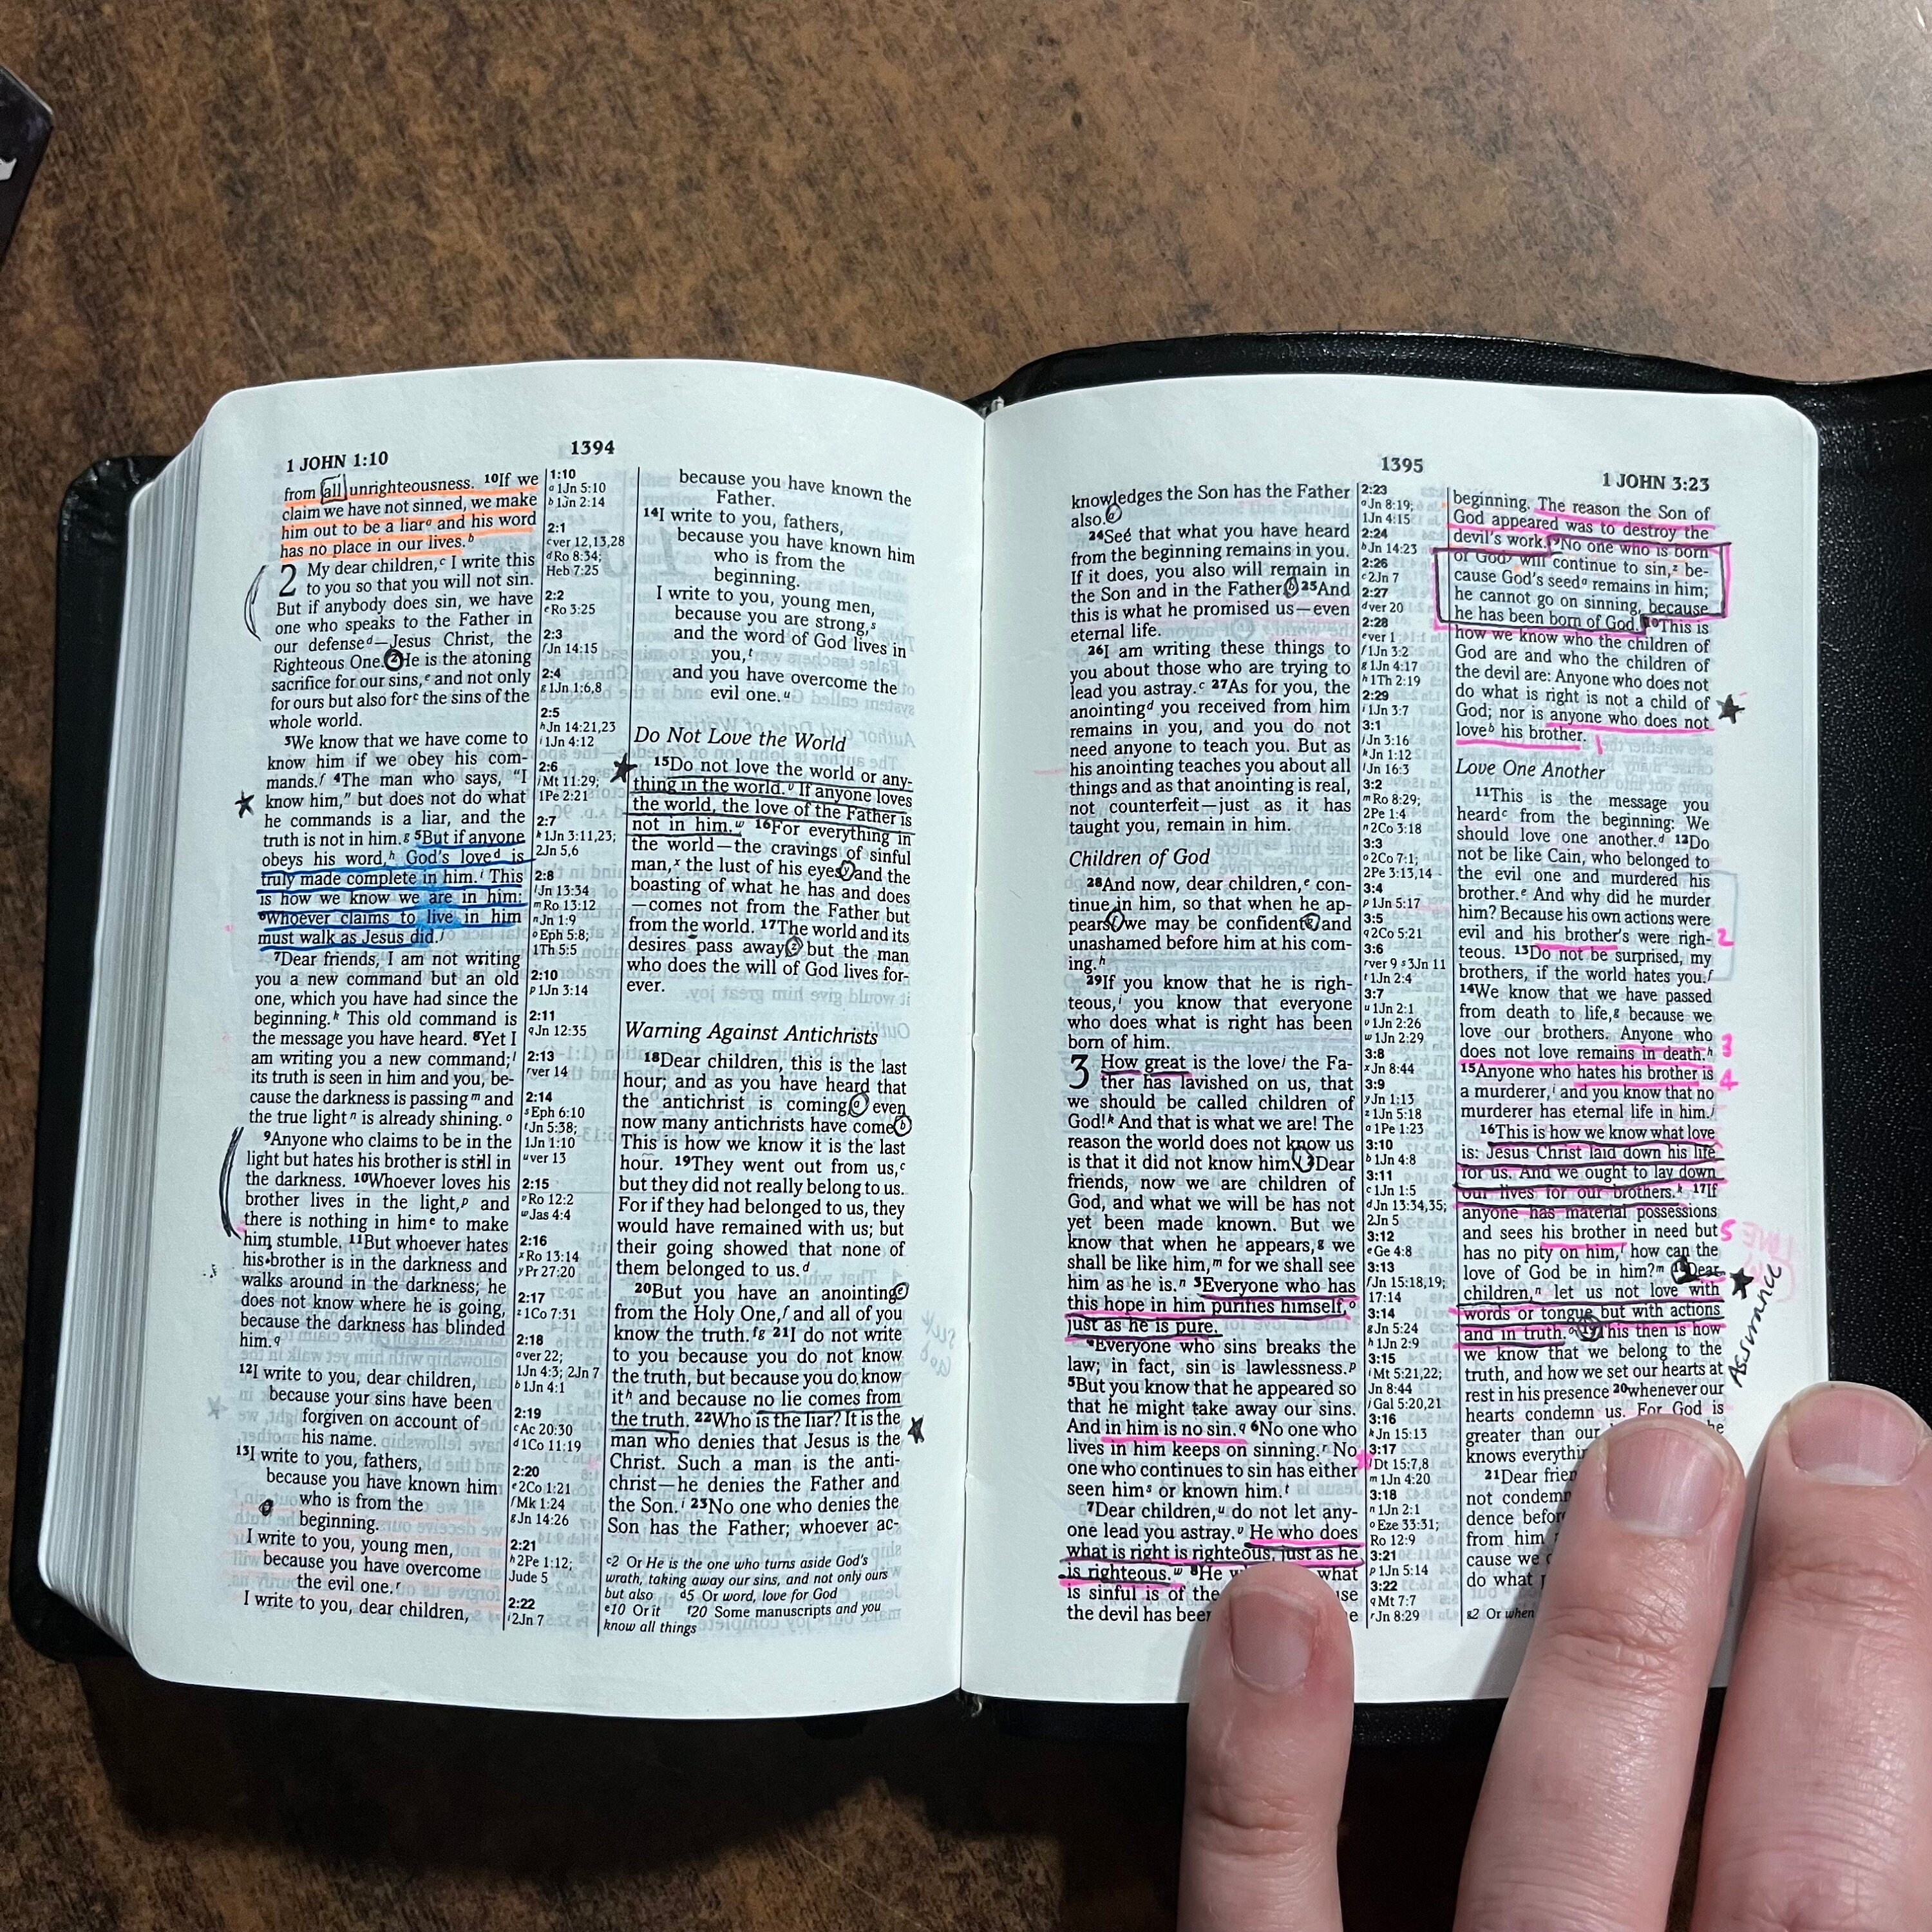 1 JOHN 1:10
1394
from all unrighteousness. 10If we
claim we have not sinned, we make
him out to be a liarᵃ and his word
has no place in our lives.ᵇ
2 My dear children,ᶜ I write this
to you so that you will not sin.
But if anybody does sin, we have
one who speaks to the Father in
our defenseᵈ—Jesus Christ, the
Righteous One. 2He is the atoning
sacrifice for our sins,ᵉ and not only
for ours but also forᶜ the sins of the
whole world.
3We know that we have come to
know him if we obey his com-
mands.ᶠ 4The man who says, “I
know him,” but does not do what
he commands is a liar, and the
truth is not in him.ᵍ 5But if anyone
obeys his word,ʰ God's loveᵈ is
truly made complete in him.ⁱ This
is how we know we are in him:
6Whoever claims to live in him
must walk as Jesus did.ʲ
7Dear friends, I am not writing
you a new command but an old
one, which you have had since the
beginning.ᵏ This old command is
the message you have heard. 8Yet I
am writing you a new command;ˡ
its truth is seen in him and you, be-
cause the darkness is passingᵐ and
the true lightⁿ is already shining.ᵒ
9Anyone who claims to be in the
light but hates his brother is still in
the darkness. 10Whoever loves his
brother lives in the light,ᵖ and
there is nothing in himᵉ to make
him stumble. 11But whoever hates
his brother is in the darkness and
walks around in the darkness; he
does not know where he is going,
because the darkness has blinded
him.q
12I write to you, dear children,
because your sins have been
forgiven on account of
his name.
13I write to you, fathers,
because you have known him
who is from the
beginning.
I write to you, young men,
because you have overcome
the evil one.ʳ
I write to you, dear children,
1:10
a 1Jn 5:10
b 1Jn 2:14
2:1
c ver 12,13,28
d Ro 8:34;
Heb 7:25
2:2
e Ro 3:25
2:3
f Jn 14:15
2:4
g 1Jn 1:6,8
2:5
h Jn 14:21,23
i 1Jn 4:12
2:6
j Mt 11:29;
1Pe 2:21
2:7
k 1Jn 3:11,23;
2Jn 5,6
2:8
l Jn 13:34
m Ro 13:12
n Jn 1:9
o Eph 5:8;
1Th 5:5
2:10
p 1Jn 3:14
2:11
q Jn 12:35
2:13
r ver 14
2:14
s Eph 6:10
t Jn 5:38;
1Jn 1:10
u ver 13
2:15
v Ro 12:2
w Jas 4:4
2:16
x Ro 13:14
y Pr 27:20
2:17
z 1Co 7:31
2:18
a ver 22;
1Jn 4:3; 2Jn 7
b 1Jn 4:1
2:19
c Ac 20:30
d 1Co 11:19
2:20
e 2Co 1:21
f Mk 1:24
g Jn 14:26
2:21
h 2Pe 1:12;
Jude 5
2:22
i 2Jn 7
because you have known the
Father.
14I write to you, fathers,
because you have known him
who is from the
beginning.
I write to you, young men,
because you are strong,ˢ
and the word of God lives in
you,ᵗ
and you have overcome the
evil one.ᵘ
Do Not Love the World
15Do not love the world or any-
thing in the world.ᵛ If anyone loves
the world, the love of the Father is
not in him.ʷ 16For everything in
the world—the cravings of sinful
man,ˣ the lust of his eyesʸ and the
boasting of what he has and does
—comes not from the Father but
from the world. 17The world and its
desires pass away,ᶻ but the man
who does the will of God lives for-
ever.
Warning Against Antichrists
18Dear children, this is the last
hour; and as you have heard that
the antichrist is coming,ᵃ even
now many antichrists have come.ᵇ
This is how we know it is the last
hour. 19They went out from us,ᶜ
but they did not really belong to us.
For if they had belonged to us, they
would have remained with us; but
their going showed that none of
them belonged to us.ᵈ
20But you have an anointingᵉ
from the Holy One,ᶠ and all of you
know the truth.ᶠᵍ 21I do not write
to you because you do not know
the truth, but because you do know
itʰ and because no lie comes from
the truth. 22Who is the liar? It is the
man who denies that Jesus is the
Christ. Such a man is the anti-
christ—he denies the Father and
the Son.ⁱ 23No one who denies the
Son has the Father; whoever ac-
c2 Or He is the one who turns aside God's
wrath, taking away our sins, and not only ours
but also d5 Or word, love for God
e10 Or it f20 Some manuscripts and you
know all things
1395
1 JOHN 3:23
knowledges the Son has the Father
also.ᵃ
24See that what you have heard
from the beginning remains in you.
If it does, you also will remain in
the Son and in the Father.ᵇ 25And
this is what he promised us—even
eternal life.
26I am writing these things to
you about those who are trying to
lead you astray.ᶜ 27As for you, the
anointingᵈ you received from him
remains in you, and you do not
need anyone to teach you. But as
his anointing teaches you about all
things and as that anointing is real,
not counterfeit—just as it has
taught you, remain in him.
Children of God
28And now, dear children,ᵉ con-
tinue in him, so that when he ap-
pearsᶠ we may be confidentᵍ and
unashamed before him at his com-
ing.ʰ
29If you know that he is righ-
teous,ⁱ you know that everyone
who does what is right has been
born of him.
3 How great is the loveʲ the Fa-
ther has lavished on us, that
we should be called children of
God!ᵏ And that is what we are! The
reason the world does not know us
is that it did not know him.ˡ 2Dear
friends, now we are children of
God, and what we will be has not
yet been made known. But we
know that when he appears,ᵍ we
shall be like him,ᵐ for we shall see
him as he is.ⁿ 3Everyone who has
this hope in him purifies himself,ᵒ
just as he is pure.
4Everyone who sins breaks the
law; in fact, sin is lawlessness.ᵖ
5But you know that he appeared so
that he might take away our sins.
And in him is no sin.q 6No one who
lives in him keeps on sinning.ʳ No
one who continues to sin has either
seen himˢ or known him.ᵗ
7Dear children,ᵘ do not let any-
one lead you astray.ᵛ He who does
what is right is righteous, just as he
is righteous.ʷ 8He what
is sinful is of the
the devil has been
2:23
a Jn 8:19;
1Jn 4:15
2:24
b Jn 14:23
2:26
c 2Jn 7
2:27
d ver 20
2:28
e ver 1
f 1Jn 3:2
g 1Jn 4:17
h 1Th 2:19
2:29
i 1Jn 3:7
3:1
j Jn 3:16
k Jn 1:12
l Jn 16:3
3:2
m Ro 8:29;
2Pe 1:4
n 2Co 3:18
3:3
o 2Co 7:1;
2Pe 3:13,14
3:4
p 1Jn 5:17
3:5
q 2Co 5:21
3:6
r ver 9 s 3Jn 11
t 1Jn 2:4
3:7
u 1Jn 2:1
v 1Jn 2:26
w 1Jn 2:29
3:8
x Jn 8:44
3:9
y Jn 1:13
z 1Jn 5:18
a 1Pe 1:23
3:10
b 1Jn 4:8
3:11
c 1Jn 1:5
d Jn 13:34,35;
2Jn 5
3:12
e Ge 4:8
3:13
f Jn 15:18,19;
17:14
3:14
g Jn 5:24
h 1Jn 2:9
3:15
i Mt 5:21,22;
Jn 8:44
j Gal 5:20,21
3:16
k Jn 15:13
3:17
l Dt 15:7,8
m 1Jn 4:20
3:18
n 1Jn 2:1
o Eze 33:31;
Ro 12:9
3:21
p 1Jn 5:14
3:22
q Mt 7:7
r Jn 8:29
beginning. The reason the Son of
God appeared was to destroy the
devil's work. 9No one who is born
of Godʸ will continue to sin,ᶻ be-
cause God's seedᵃ remains in him;
he cannot go on sinning, because
he has been born of God. 10This is
how we know who the children of
God are and who the children of
the devil are: Anyone who does not
do what is right is not a child of
God; nor is anyone who does not
loveᵇ his brother. 1
Love One Another
11This is the message you
heardᶜ from the beginning: We
should love one another.ᵈ 12Do
not be like Cain, who belonged to
the evil one and murdered his
brother.ᵉ And why did he murder
him? Because his own actions were
evil and his brother's were righ- 2
teous. 13Do not be surprised, my
brothers, if the world hates you.ᶠ
14We know that we have passed
from death to life,ᵍ because we
love our brothers. Anyone who 3
does not love remains in death.ʰ
15Anyone who hates his brother is 4
a murderer,ⁱ and you know that no
murderer has eternal life in him.ʲ
16This is how we know what love
is: Jesus Christ laid down his life
for us. And we ought to lay down
our lives for our brothers.ᵏ 17If
anyone has material possessions
and sees his brother in need but 5
has no pity on him,ˡ how can the
love of God be in him?ᵐ 18Dear
children,ⁿ let us not love with
words or tongue but with actions
and in truth.ᵒ 19This then is how
we know that we belong to the
truth, and how we set our hearts at
rest in his presence 20whenever our
hearts condemn us. For God is
greater than our
knows everythin
21Dear frien
not condemn
dence befor
from him
cause we
do what
g2 Or when
Assurance